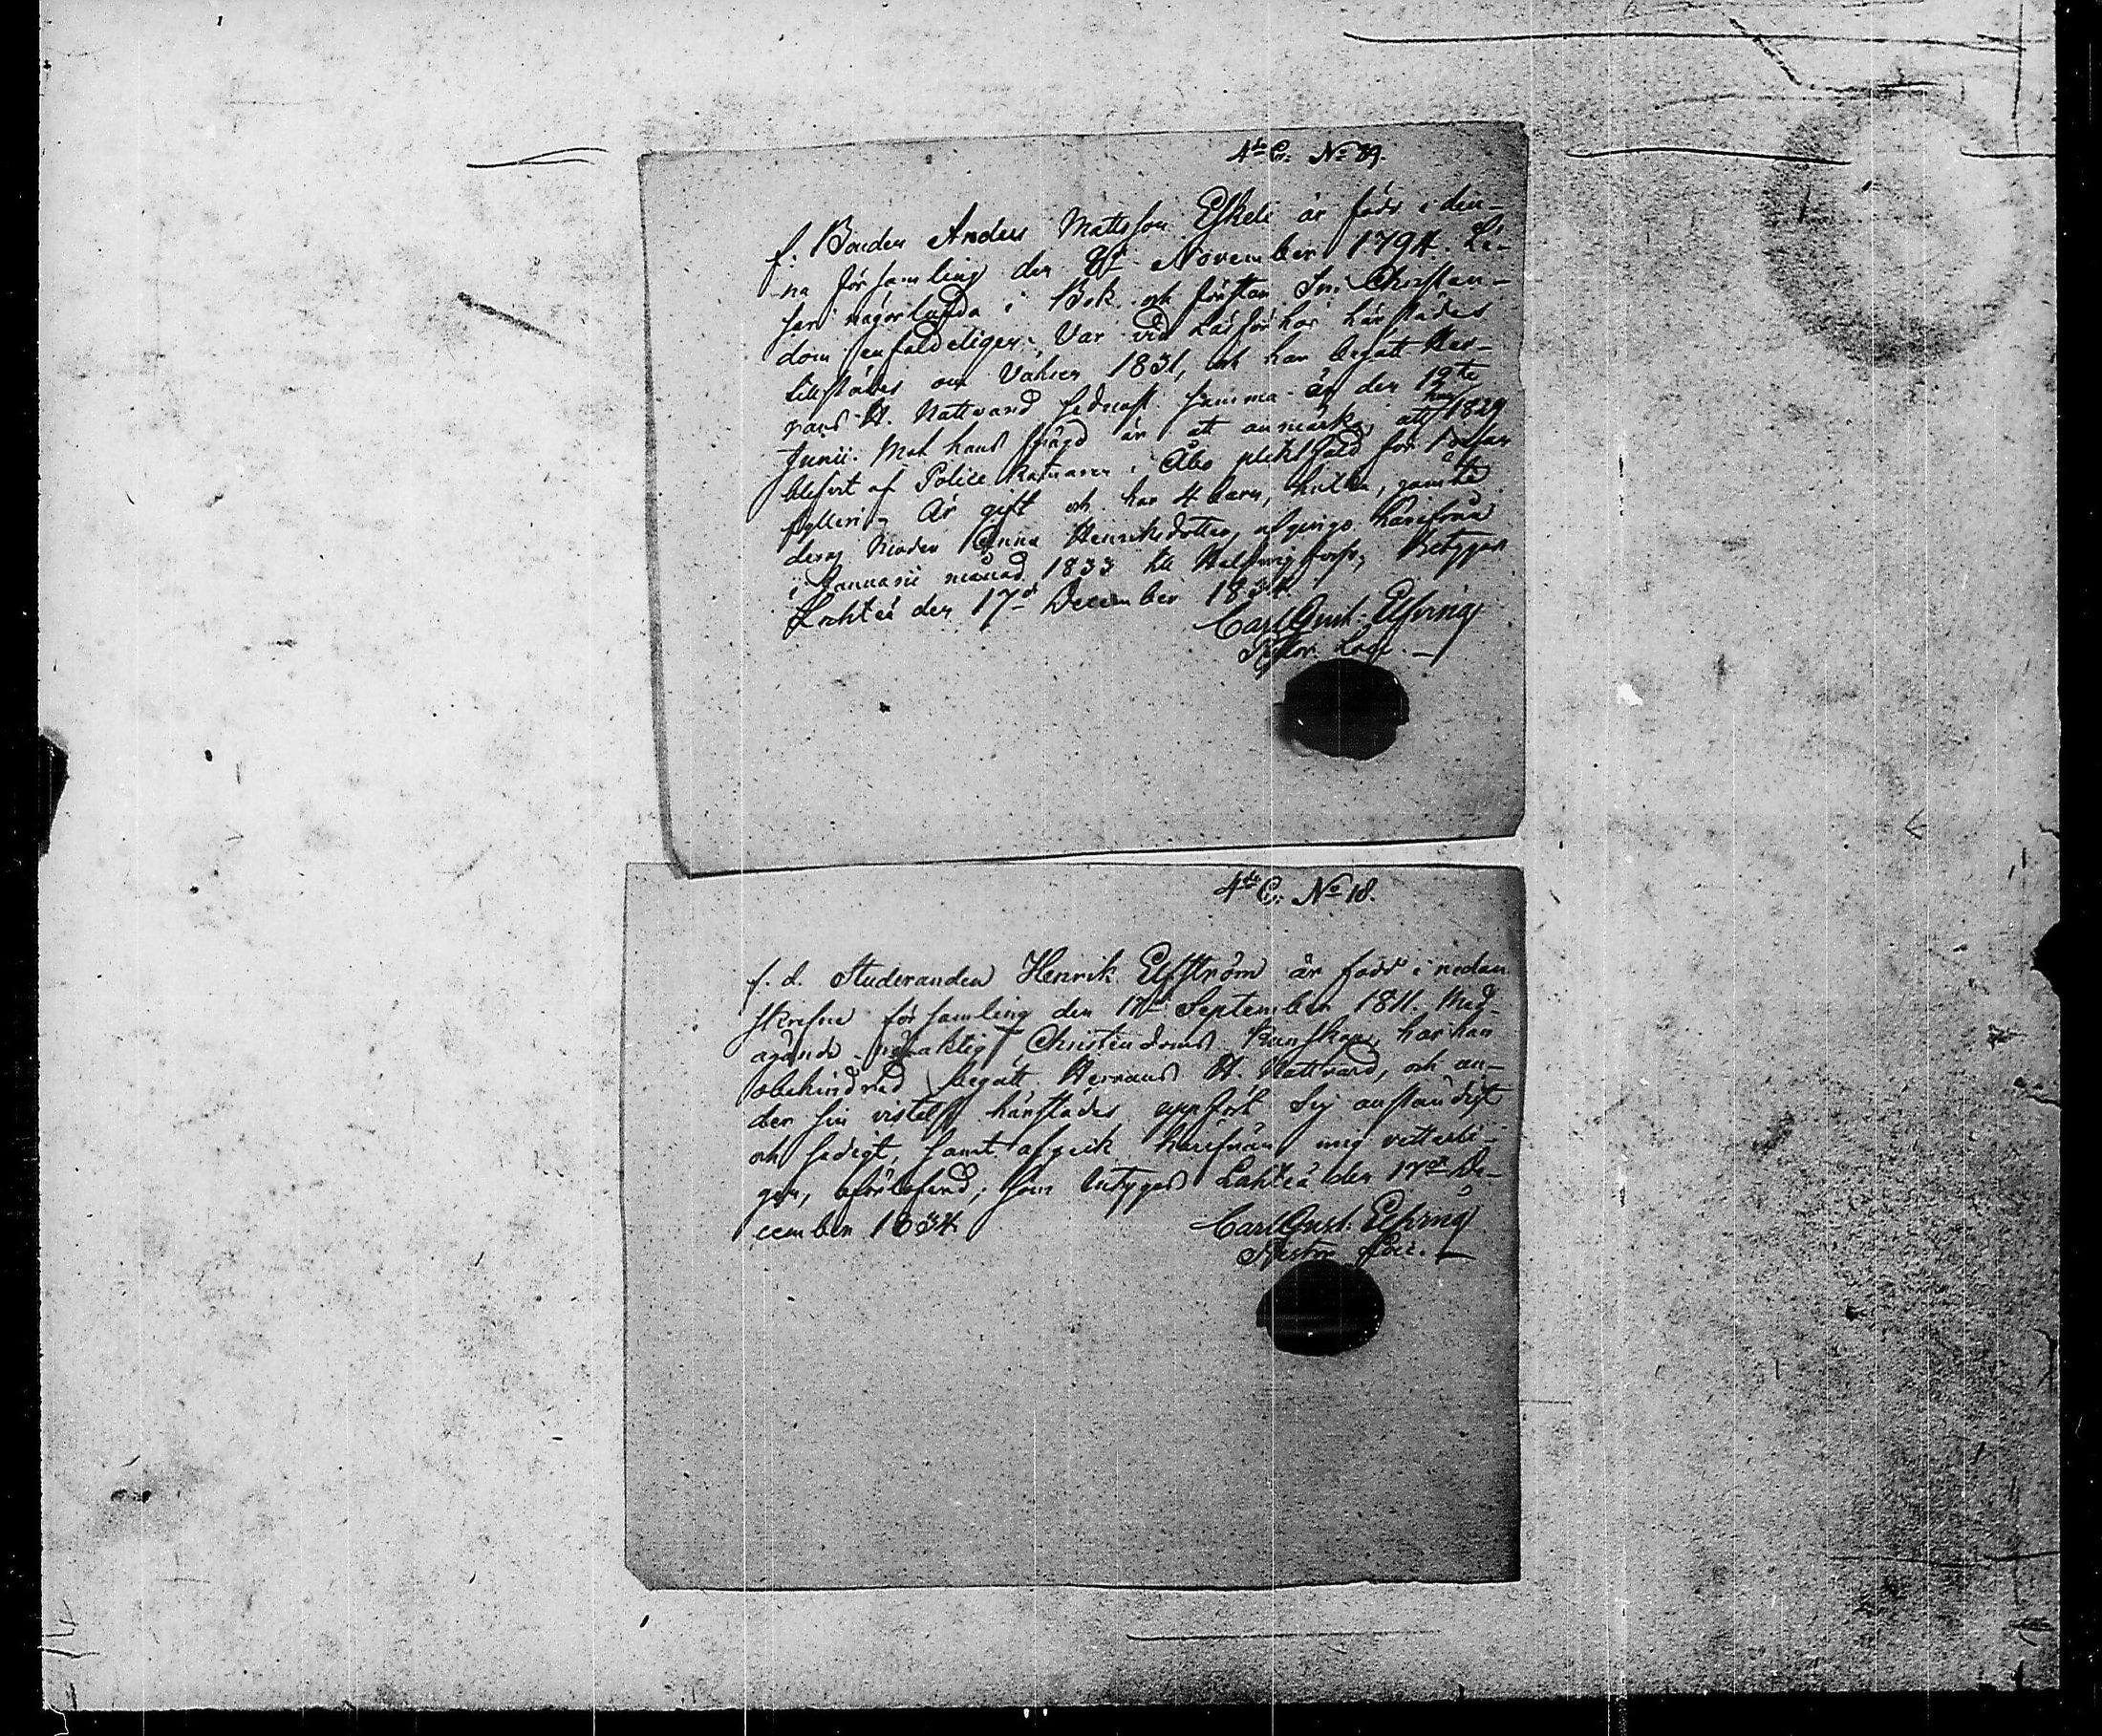 4de C. No 19.
f. Bonden Anders Mattsson Eskeli är född i den-
na församling den 8de November 1794. Lä-
ser någorlunda i Bok och förstår sin Christen-
dom enfaldeligen. Var vid Läsförhör härstädes
tillstädes om Våhren 1831, och har begått Her-
rans H. Nattvard sednast samma år den 19te
Junii. Mot hans frägd är att anmärka, att han 1829
blifvit af Police Kammaren i Åbo pliktfäld för
fylleri. Är gift och har 4 barn, hvilka, jämte
deras Moder Anna Henriksdotter, afgingo härifrån
i Januarii månad 1833 till Helsingfors, betygar
Lochteå den 17de December 1834.
Carl Gust. Elfving
Pastor Loci.
4de C. No 18.
f. d. Studeranden Henrik Elfström är född i nedan
skrefne församling den 17de September 1811. Med
ägande Christendoms kunskap, har han
obehindrad begått Herrans H. Nattvard, och un-
der sin vistelse härstädes uppfört sig anständigt
och sedigt, samt afgick härifrån mig vetterli-
gen, oförlofvad; som betygas Lahteå den 17de De-
cember 1834
Carl Gust. Elfving
Pastor Loci.